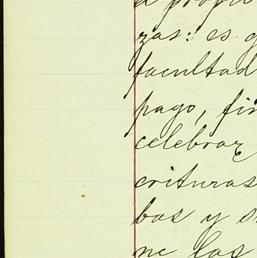 a propie
zas: es g
facultad
pago, fin
celebrar
crituras
bas y s
ne las